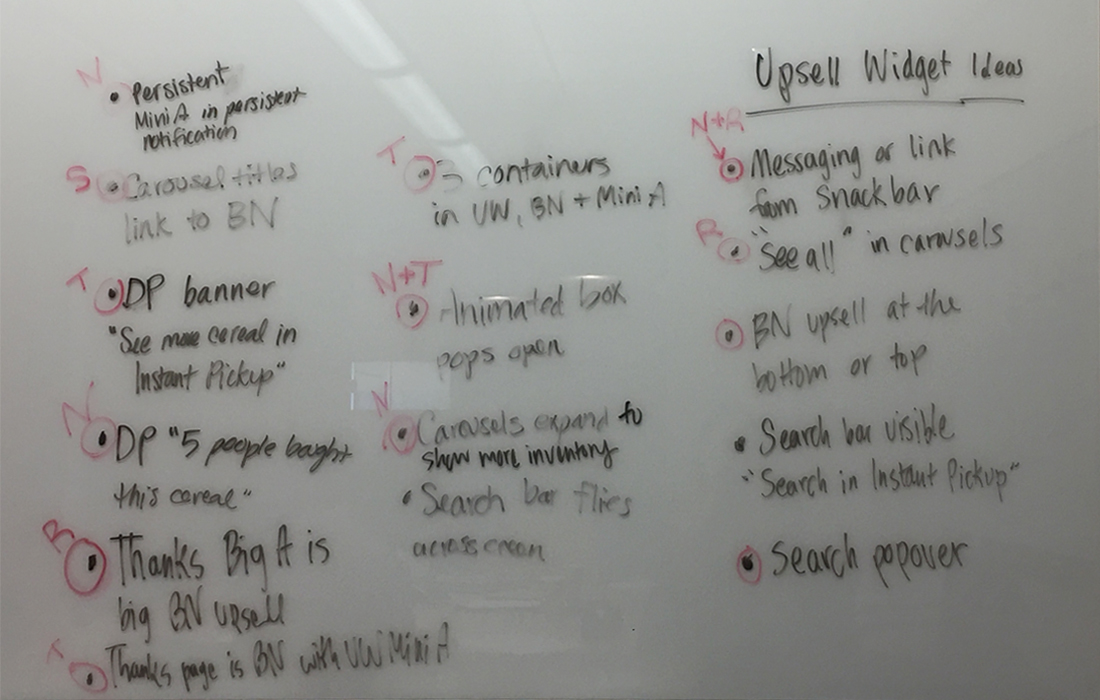 Upsell Widget Ideas
N
• Persistent
Mini A in persistent
notification
S
• Carousel titles
link to BN
T
• DP banner
"See more cereal in
Instant Pickup"
N
• DP "5 people bought
this cereal"
R
• Thanks Big A is
big BN upsell
T
• Thanks page is BN with UW Mini A
T
• 3 containers
in UW, BN + Mini A
N+T
• Animated box
pops open
N
• Carousels expand to
show more inventory
• Search bar flies
across
N+R
• Messaging or link
from Snackbar
R
• "See all" in carousels
• BN upsell at the
bottom or top
• Search bar visible
"Search in Instant Pickup"
• Search popover